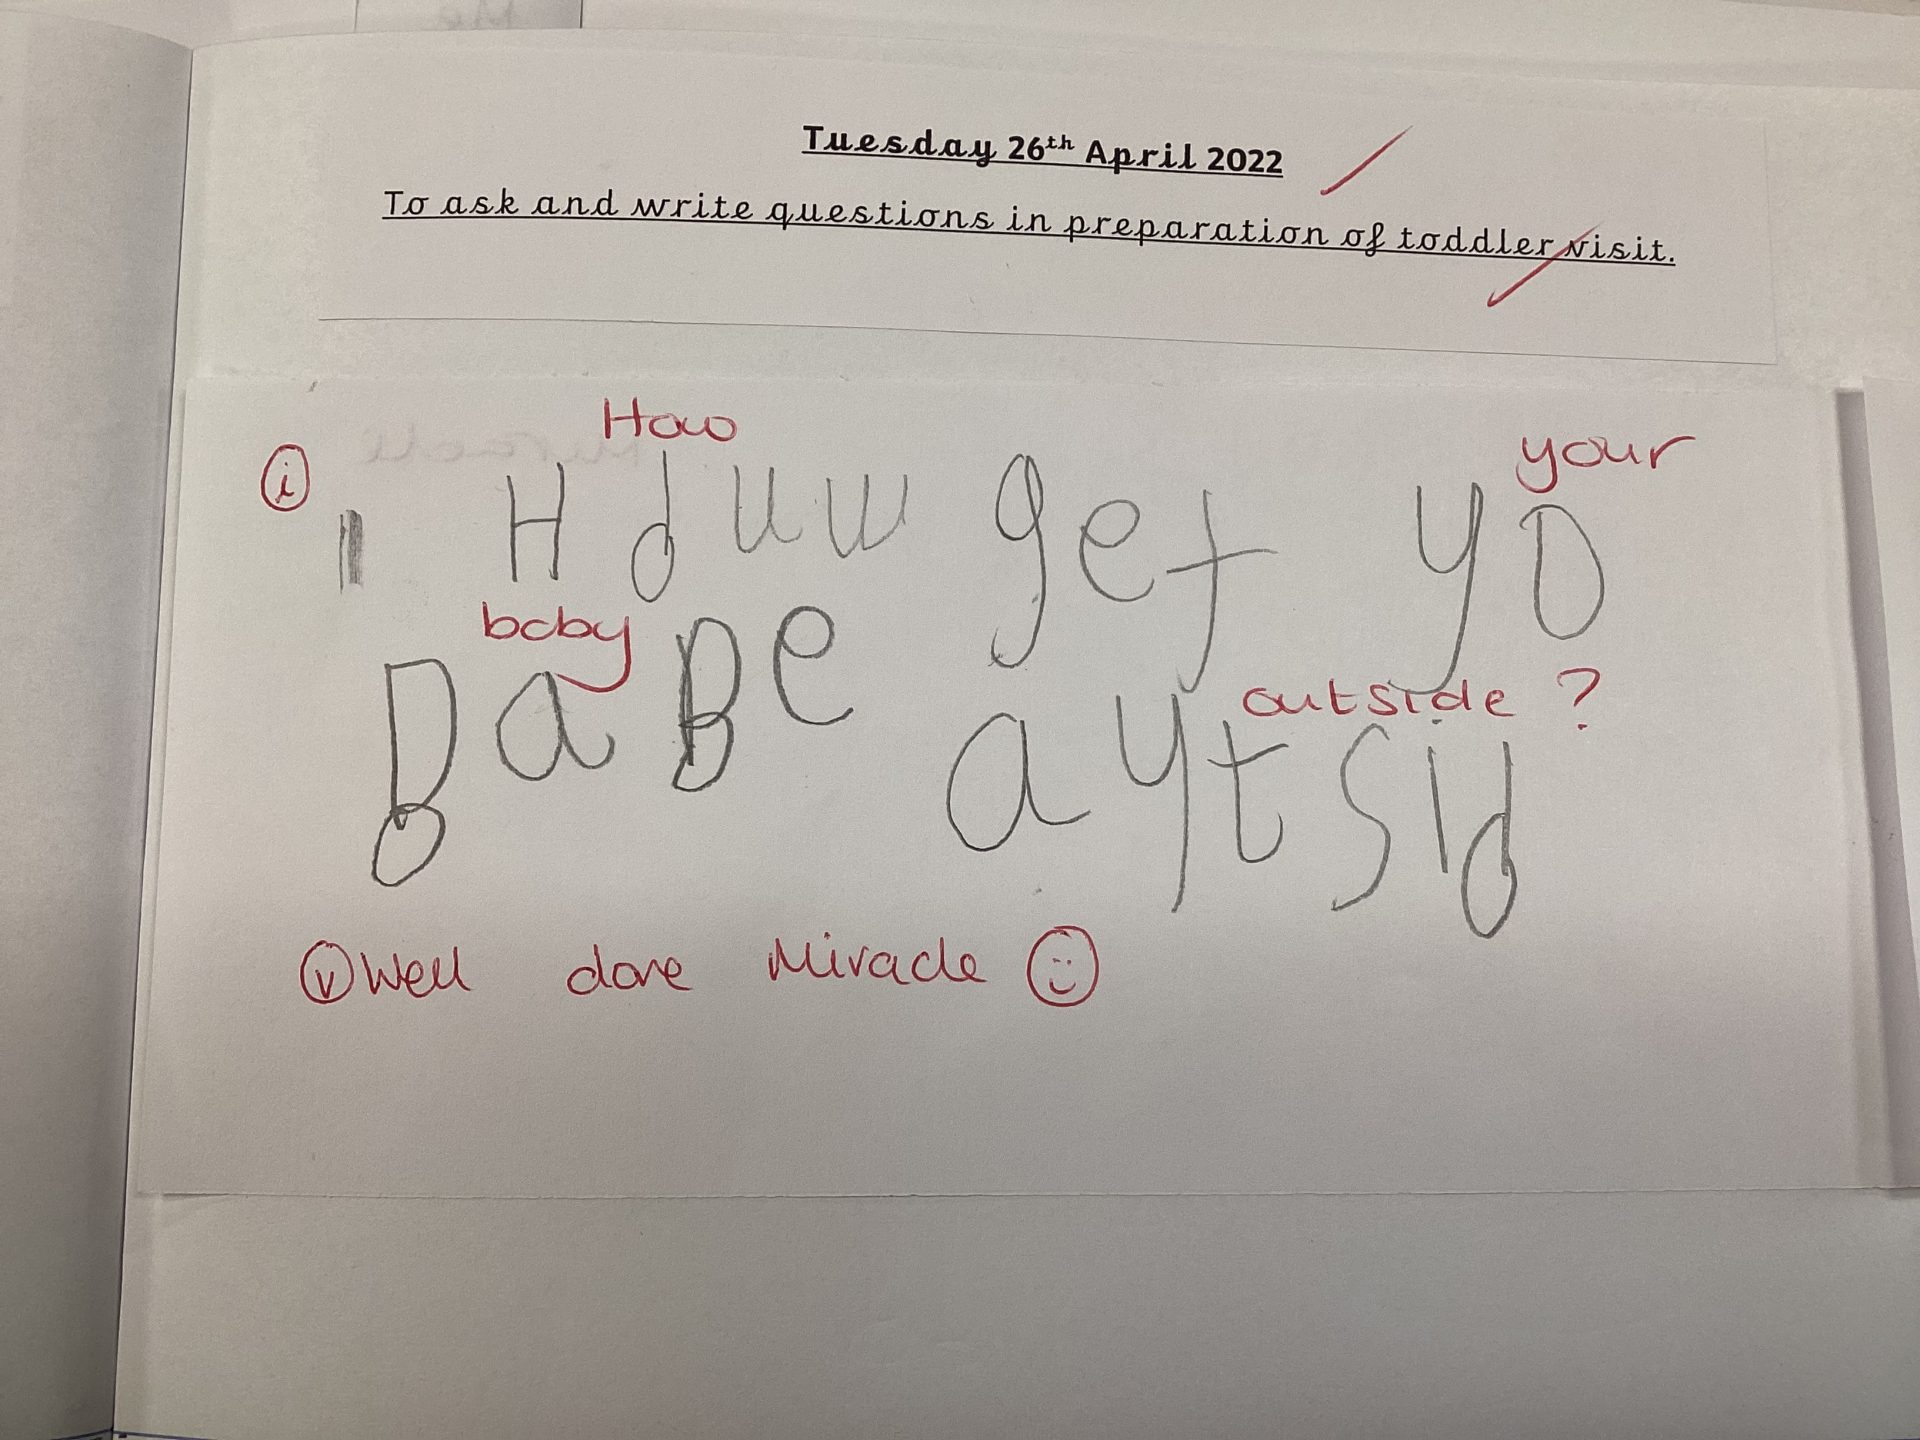 Tuesday 26th April 2022
To ask and write questions in preparation of toddler visit.
How your
i H duw get yo
baby
BaBe aytsid
outside ?
v Well done Miracle